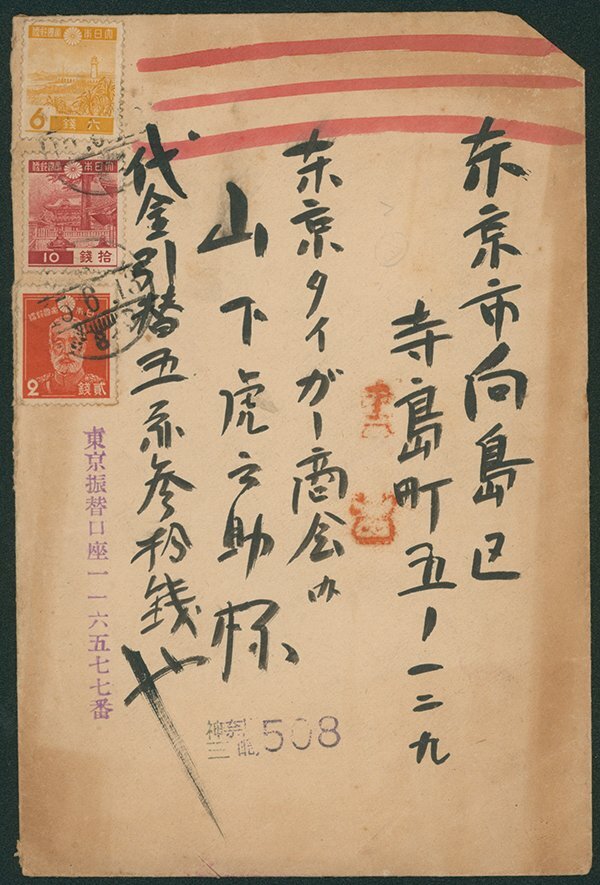 東京市向島区
寺島町五ノ一二九
東京タイガー商会内
山下虎之助様
代金引替五円参拾銭也
東京振替口座一一六五七七番
508
大日本帝国郵便
6 六銭
大日本帝国郵便
10 拾銭
大日本帝国郵便
2 貳銭